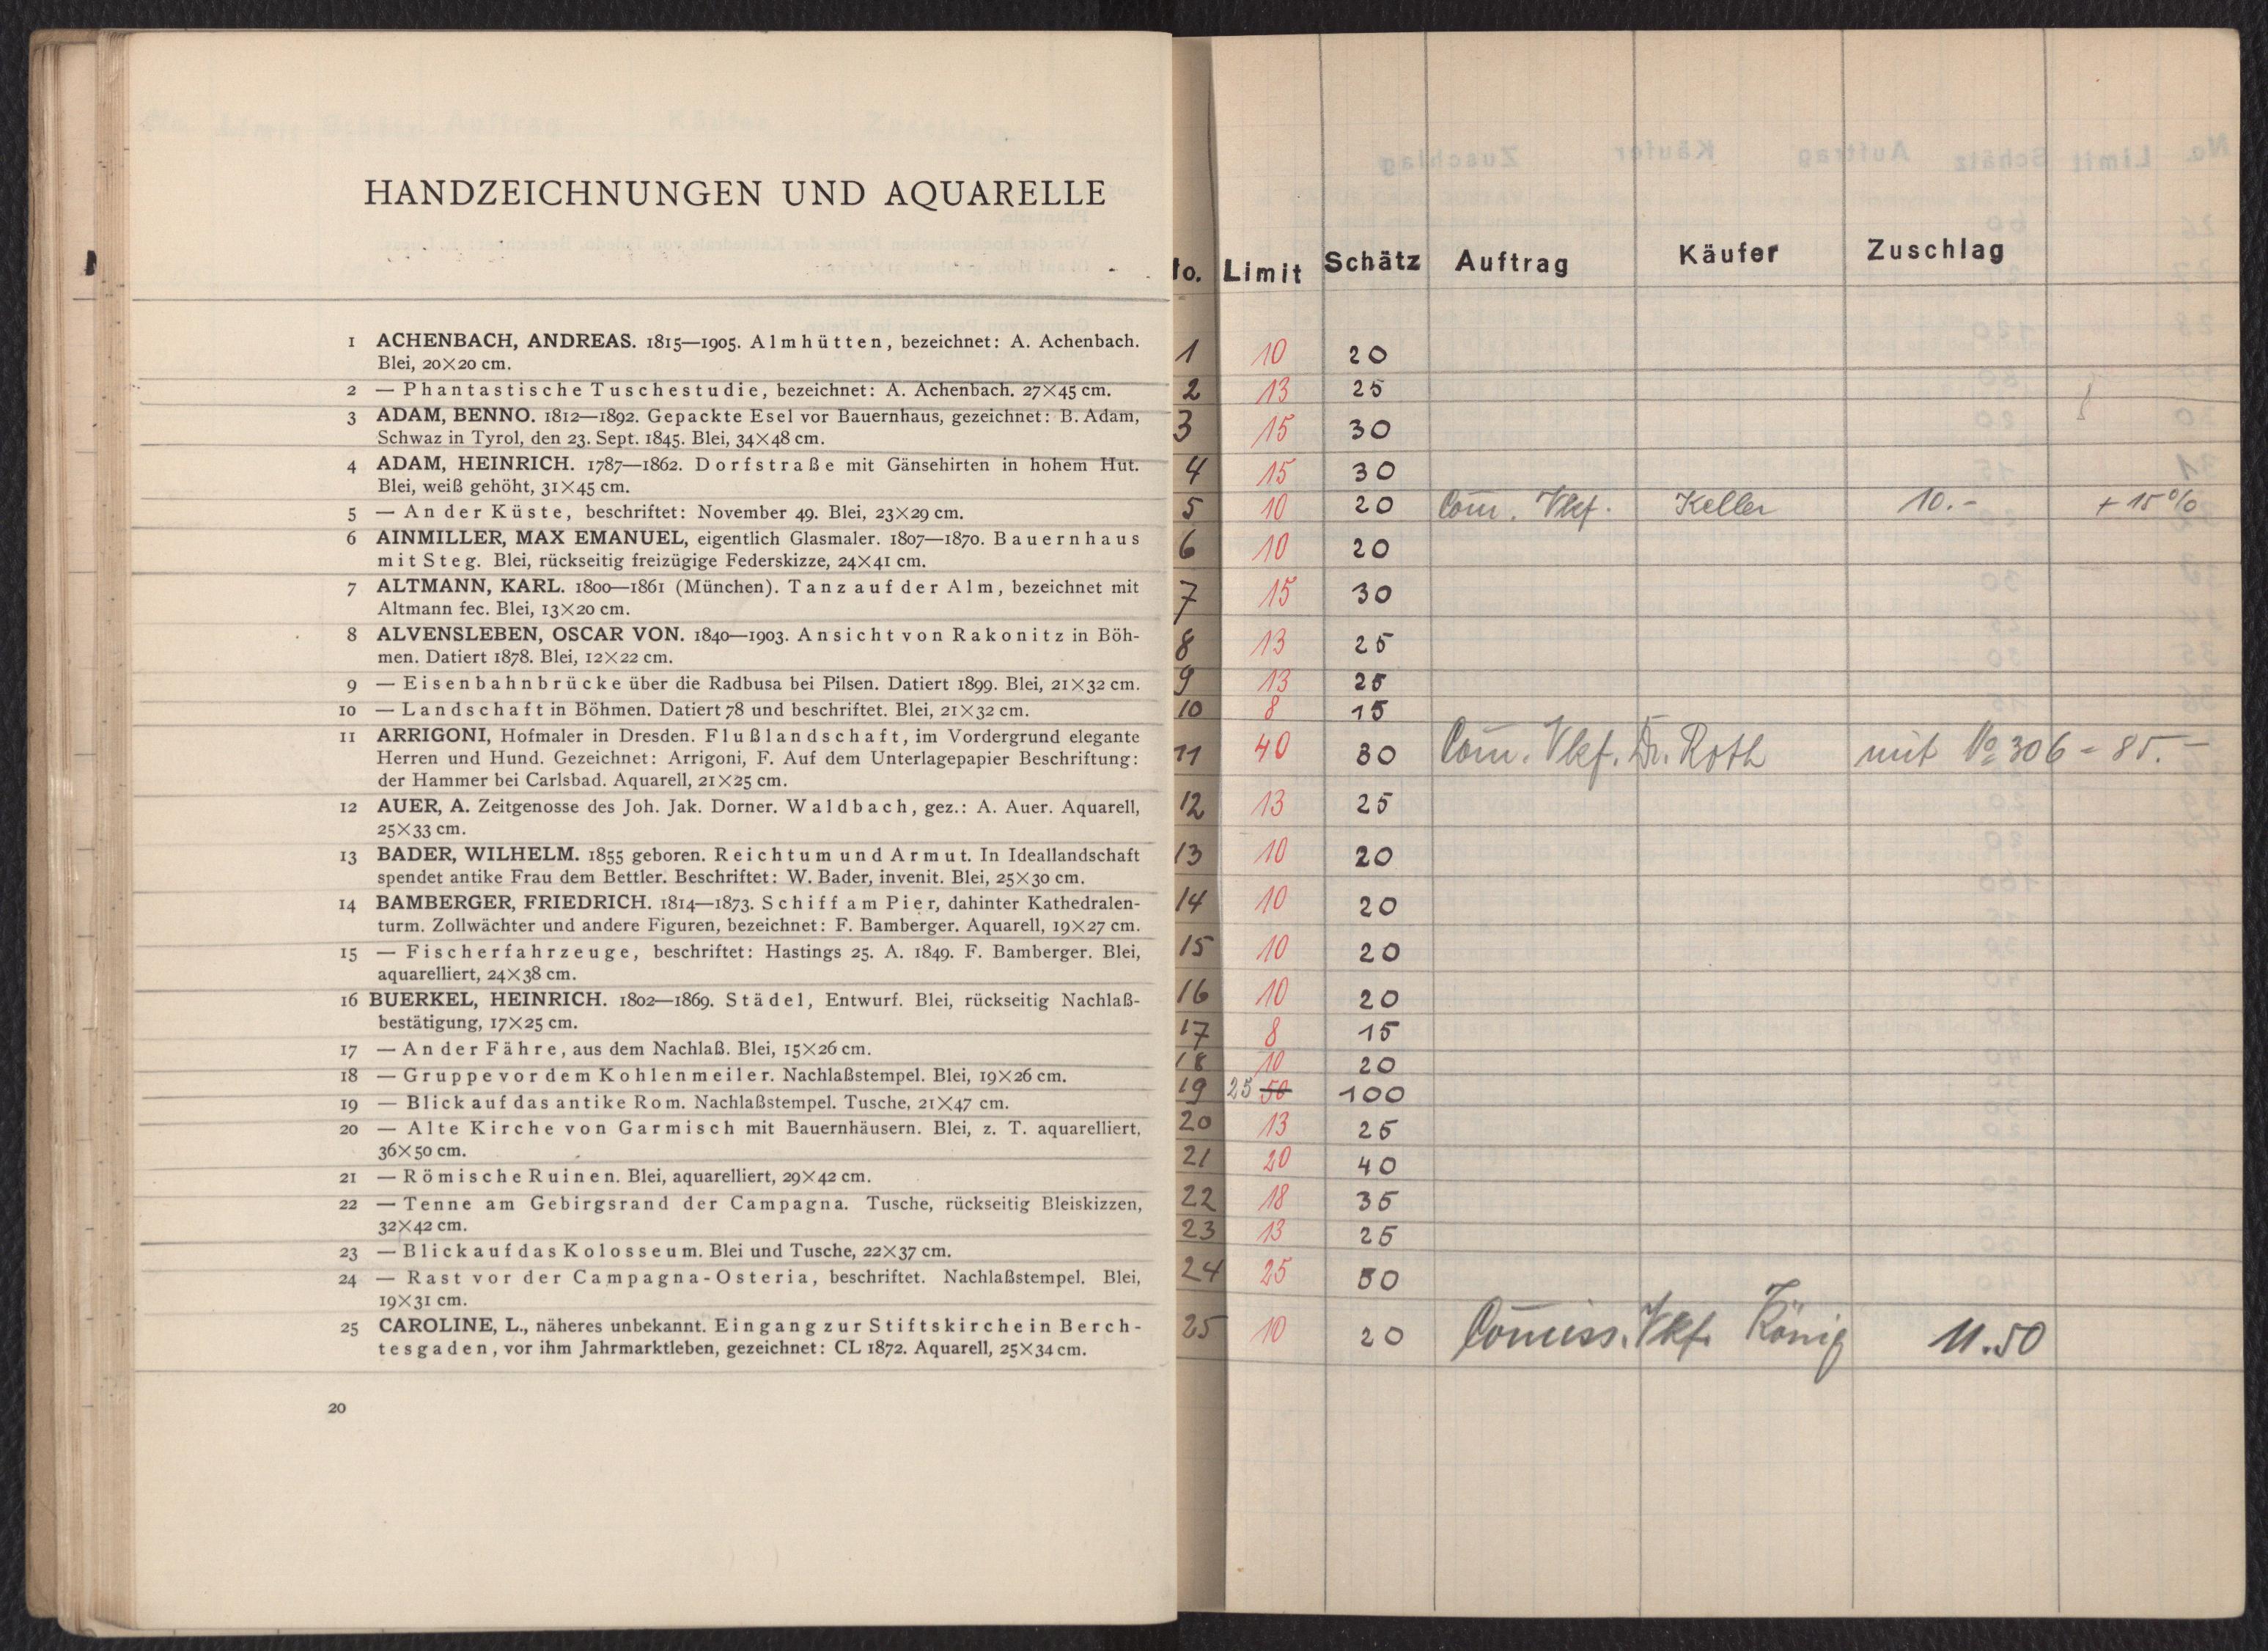 HANDZEICHNUNGEN UND AQUARELLE
1 ACHENBACH, ANDREAS. 1815—1905. Almhütten, bezeichnet: A. Achenbach.
Blei, 20×20 cm.
2 — Phantastische Tuschestudie, bezeichnet: A. Achenbach. 27×45 cm.
3 ADAM, BENNO. 1812—1892. Gepackte Esel vor Bauernhaus, gezeichnet: B. Adam,
Schwaz in Tyrol, den 23. Sept. 1845. Blei, 34×48 cm.
4 ADAM, HEINRICH. 1787—1862. Dorfstraße mit Gänsehirten in hohem Hut.
Blei, weiß gehöht, 31×45 cm.
5 — An der Küste, beschriftet: November 49. Blei, 23×29 cm.
6 AINMILLER, MAX EMANUEL, eigentlich Glasmaler. 1807—1870. Bauernhaus
mit Steg. Blei, rückseitig freizügige Federskizze, 24×41 cm.
7 ALTMANN, KARL. 1800—1861 (München). Tanz auf der Alm, bezeichnet mit
Altmann fec. Blei, 13×20 cm.
8 ALVENSLEBEN, OSCAR VON. 1840—1903. Ansicht von Rakonitz in Böh-
men. Datiert 1878. Blei, 12×22 cm.
9 — Eisenbahnbrücke über die Radbusa bei Pilsen. Datiert 1899. Blei, 21×32 cm.
10 — Landschaft in Böhmen. Datiert 78 und beschriftet. Blei, 21×32 cm.
11 ARRIGONI, Hofmaler in Dresden. Flußlandschaft, im Vordergrund elegante
Herren und Hund. Gezeichnet: Arrigoni, F. Auf dem Unterlagepapier Beschriftung:
der Hammer bei Carlsbad. Aquarell, 21×25 cm.
12 AUER, A. Zeitgenosse des Joh. Jak. Dorner. Waldbach, gez.: A. Auer. Aquarell,
25×33 cm.
13 BADER, WILHELM. 1855 geboren. Reichtum und Armut. In Ideallandschaft
spendet antike Frau dem Bettler. Beschriftet: W. Bader, invenit. Blei, 25×30 cm.
14 BAMBERGER, FRIEDRICH. 1814—1873. Schiff am Pier, dahinter Kathedralen-
turm. Zollwächter und andere Figuren, bezeichnet: F. Bamberger. Aquarell, 19×27 cm.
15 — Fischerfahrzeuge, beschriftet: Hastings 25. A. 1849. F. Bamberger. Blei,
aquarelliert, 24×38 cm.
16 BUERKEL, HEINRICH. 1802—1869. Städel, Entwurf. Blei, rückseitig Nachlaß-
bestätigung, 17×25 cm.
17 — An der Fähre, aus dem Nachlaß. Blei, 15×26 cm.
18 — Gruppe vor dem Kohlenmeiler. Nachlaßstempel. Blei, 19×26 cm.
19 — Blick auf das antike Rom. Nachlaßstempel. Tusche, 21×47 cm.
20 — Alte Kirche von Garmisch mit Bauernhäusern. Blei, z. T. aquarelliert,
36×50 cm.
21 — Römische Ruinen. Blei, aquarelliert, 29×42 cm.
22 — Tenne am Gebirgsrand der Campagna. Tusche, rückseitig Bleiskizzen,
32×42 cm.
23 — Blick auf das Kolosseum. Blei und Tusche, 22×37 cm.
24 — Rast vor der Campagna-Osteria, beschriftet. Nachlaßstempel. Blei,
19×31 cm.
25 CAROLINE, L., näheres unbekannt. Eingang zur Stiftskirche in Berch-
tesgaden, vor ihm Jahrmarktleben, gezeichnet: CL 1872. Aquarell, 25×34 cm.
20
o. Limit Schätz Auftrag Käufer Zuschlag
1 10 20
2 13 25
3 15 30
4 15 30
5 10 20 Com. Vkf. Keller 10.- + 15%
6 10 20
7 15 30
8 13 25
9 13 25
10 8 15
11 40 80 Com. Vkf. Dr. Roth mit No 306 = 85.-
12 13 25
13 10 20
14 10 20
15 10 20
16 10 20
17 8 15
18 10 20
19 25 50 100
20 13 25
21 20 40
22 18 35
23 13 25
24 25 50
25 10 20 Comiss. Vkf. König 11.50